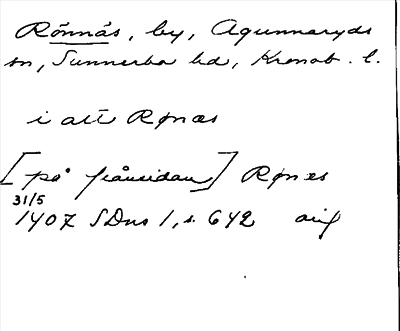 Rönnäs, by, Agunnaryds
sn, Sunnerbo hd, Kronob. l.
i att Rønæs
[på frånsidan] Rønes
31/5
1407 SDns 1, s. 642 orig